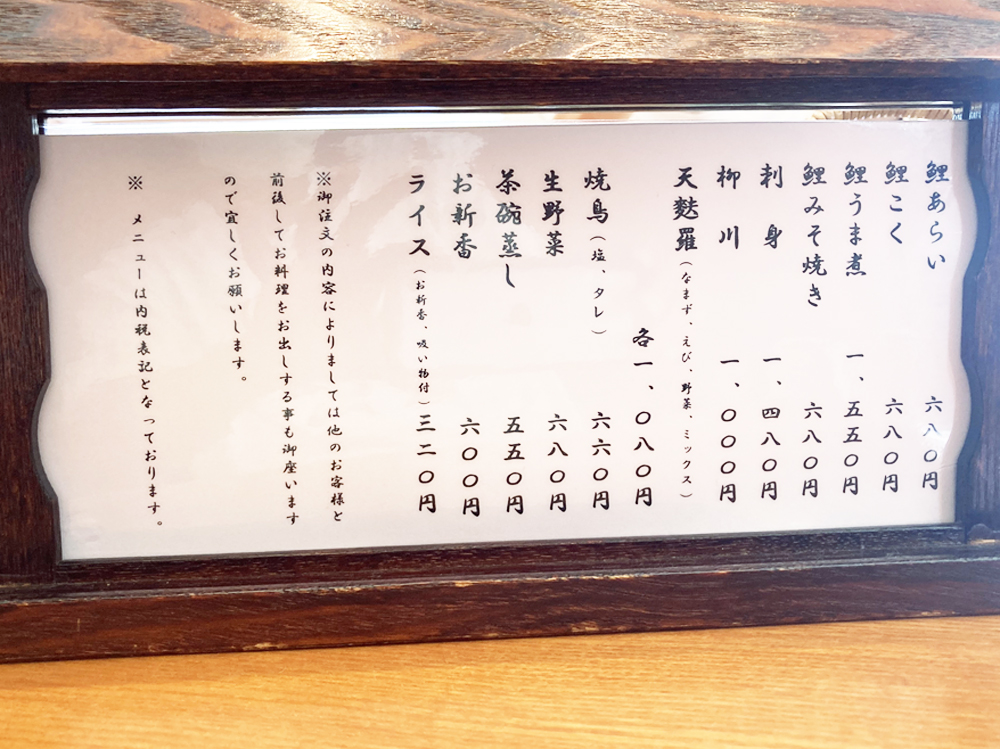 鯉あらい 六八〇円
鯉こく 六八〇円
鯉うま煮 一、五五〇円
鯉みそ焼き 六八〇円
刺身 一、四八〇円
柳川 一、〇〇〇円
天麩羅(なまず、えび、野菜、ミックス)
各一、〇八〇円
焼鳥(塩、タレ) 六六〇円
生野菜 六八〇円
茶碗蒸し 五五〇円
お新香 六〇〇円
ライス(お新香、吸い物付) 三二〇円
※御注文の内容によりましては他のお客様と
前後してお料理をお出しする事も御座います
ので宜しくお願いします。
※ メニューは内税表記となっております。